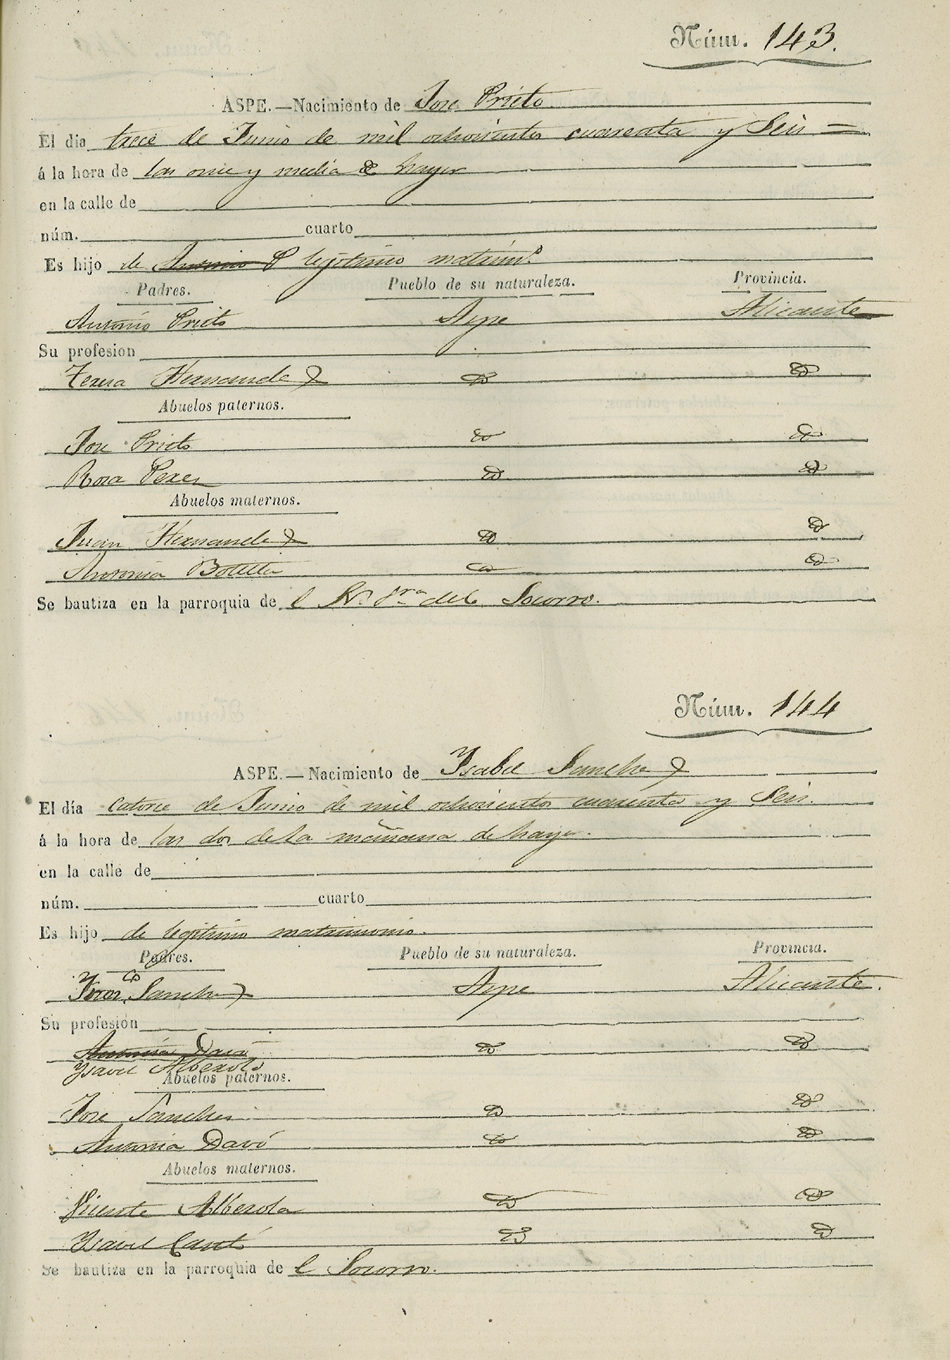 Núm. 143.
ASPE.—Nacimiento de Jose Prieto
El dia trece de Junio de mil ochocientos cuarenta y Seis =
á la hora de las once y media de hayer
en la calle de
núm. cuarto
Es hijo de Antonio P legitimo matrim.º
Padres. Pueblo de su naturaleza. Provincia.
Antonio Prieto Aspe Alicante
Su profesion
Teresa Hernandez D D
Abuelos paternos.
Jose Prieto D D
Rosa Perez D D
Abuelos maternos.
Juan Hernandez D D
Antonia Botella D D
Se bautiza en la parroquia de l N. Sra del Socorro.
Núm. 144
ASPE.—Nacimiento de Ysabel Sanchez
El día catorce de Junio de mil ochocientos cuarenta y Seis.
á la hora de las dos de la mañana de haye
en la calle de
núm. cuarto
Es hijo de legitimo matrimonio.
Padres. Pueblo de su naturaleza. Provincia.
Franco Sanchez Aspe Alicante.
Su profesión
Antonia Davó D D
Ysavel Alberola
Abuelos paternos.
Jose Sanches D D
Antonia Davó D D
Abuelos maternos.
Vicente Alberola D D
Ysavel Cantó D D
Se bautiza en la parroquia de l Socorro.